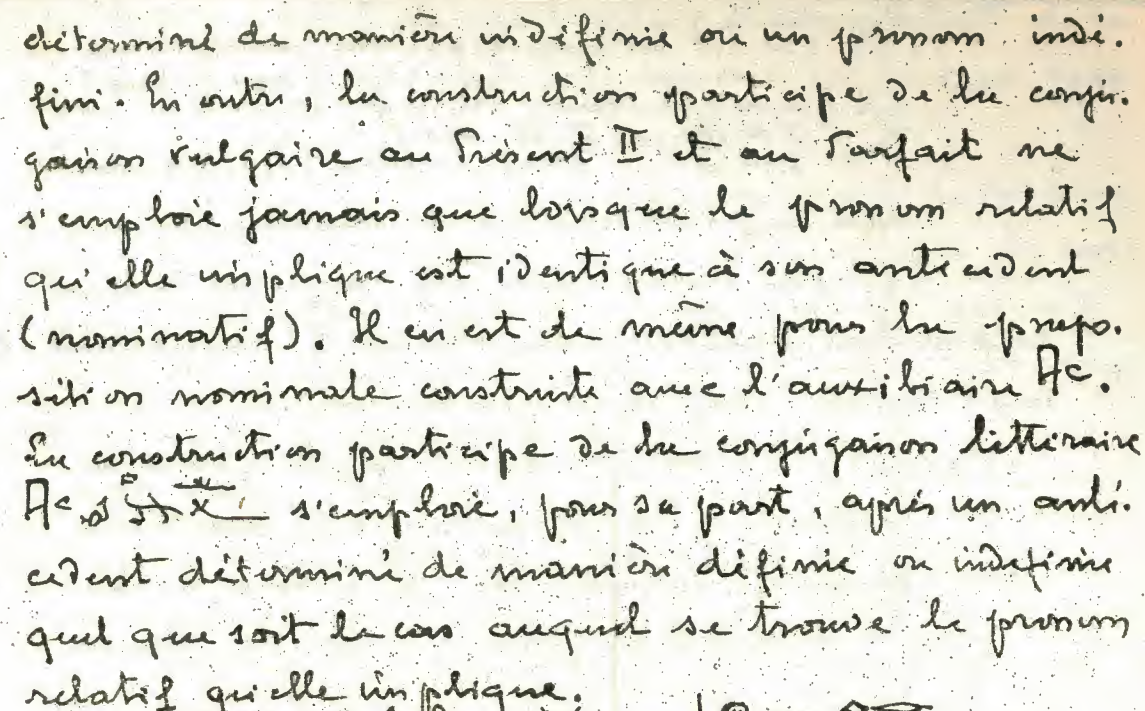 déterminé de manière indéfinie ou un pronom indé.
fini. En outre, la construction participe de la conju.
gaison vulgaire au Présent II et au Parfait ne
s'emploie jamais que lorsque le pronom relatif
qu'elle implique est identique à son antécédent
(nominatif). Il en est de même pour la propo.
sition nominale construite avec l'auxiliaire
La construction participe de la conjugaison littéraire
s'emploie, pour sa part, après un anté.
cédent déterminé de manière définie ou indéfinie
quel que soit le cas auquel se trouve le pronom
relatif qu'elle implique.